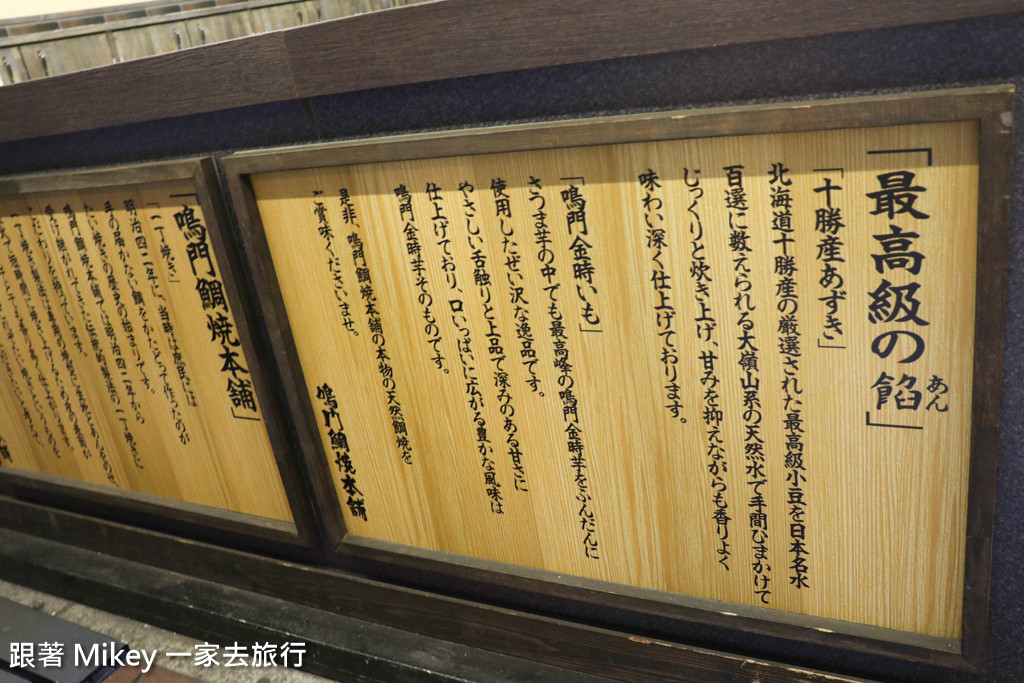 「最高級の餡」
あん
「十勝産あずき」
北海道十勝産の厳選された最高級小豆を日本名水
百選に数えられる大嶺山系の天然水で手間ひまかけて
じっくりと炊き上げ、甘みを抑えながらも香りよく
味わい深く仕上げております。
「鳴門金時いも」
さつま芋の中でも最高峰の鳴門金時芋をふんだんに
使用したぜい沢な逸品です。
やさしい舌触りと上品で深みのある甘さに
仕上げており、口いっぱいに広がる豊かな風味は
鳴門金時芋そのものです。
是非、鳴門鯛焼本舗の本物の天然鯛焼を
ご賞味くださいませ。
鳴門鯛焼本舗
「鳴門鯛焼本舗」
「一丁焼き」
明治四二年に、当時は庶民には
手の届かない鯛をかたどって作ったのが
たい焼きの歴史の始まりです。
鳴門鯛焼本舗では明治四二年から
跟著 Mikey 一家去旅行